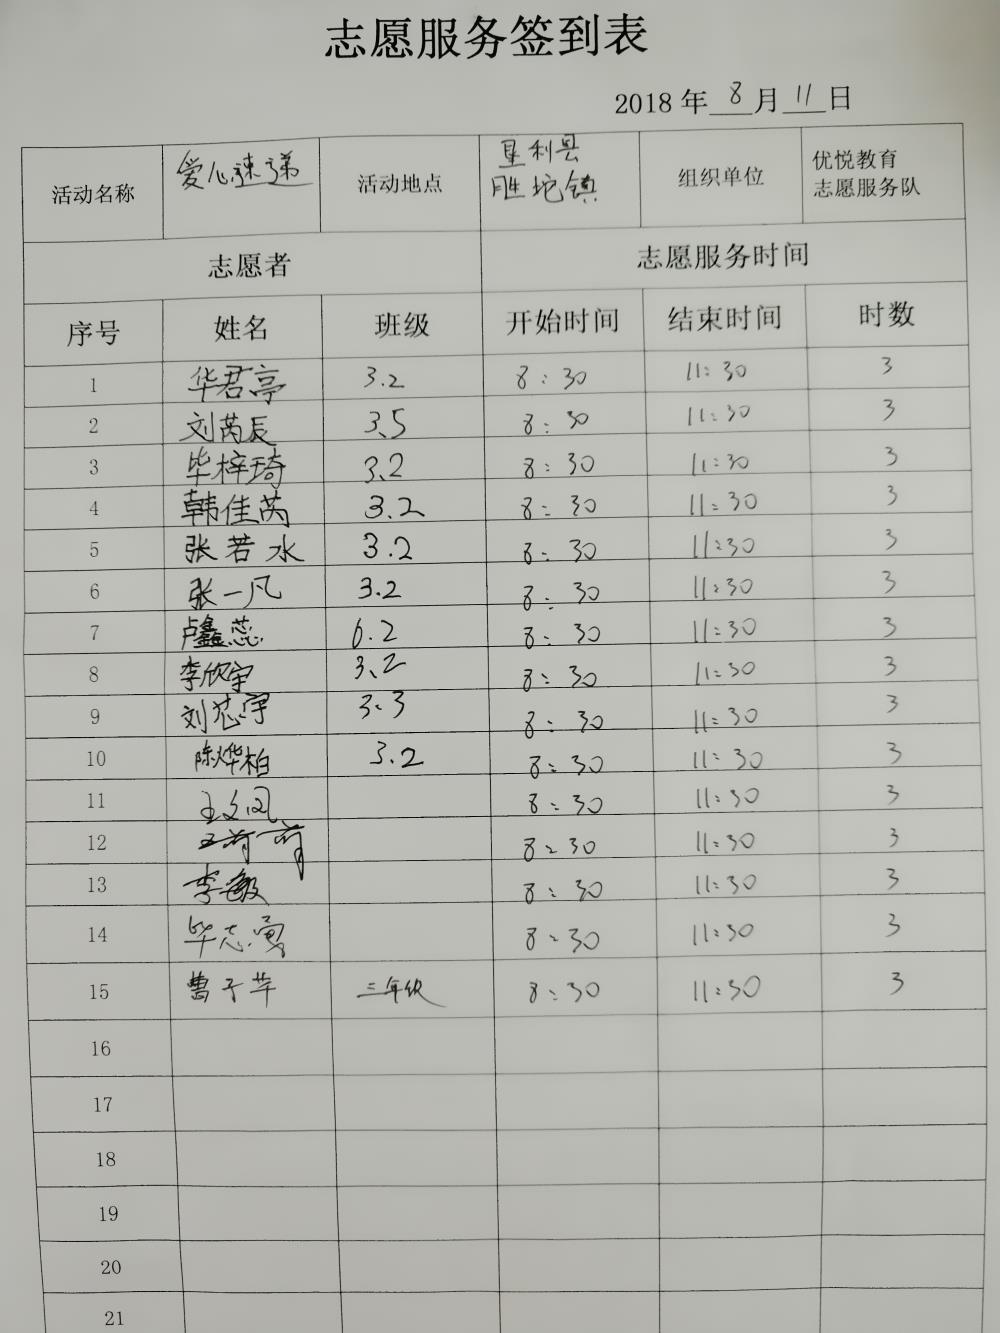 志愿服务签到表
2018 年 8 月 11 日
活动名称 爱心速递 活动地点 垦利县 胜坨镇 组织单位 优悦教育 志愿服务队
志愿者 志愿服务时间
序号 姓名 班级 开始时间 结束时间 时数
1 华君亭 3.2 8:30 11:30 3
2 刘芮辰 3.5 8:30 11:30 3
3 毕梓琦 3.2 8:30 11:30 3
4 韩佳芮 3.2 8:30 11:30 3
5 张若水 3.2 8:30 11:30 3
6 张一凡 3.2 8:30 11:30 3
7 卢鑫蕊 6.2 8:30 11:30 3
8 李欣宇 3.2 8:30 11:30 3
9 刘芯宇 3.3 8:30 11:30 3
10 陈烨柏 3.2 8:30 11:30 3
11 王文凤 8:30 11:30 3
12 8:30 11:30 3
13 李敏 8:30 11:30 3
14 毕志勇 8:30 11:30 3
15 曹子苹 三年级 8:30 11:30 3
16
17
18
19
20
21